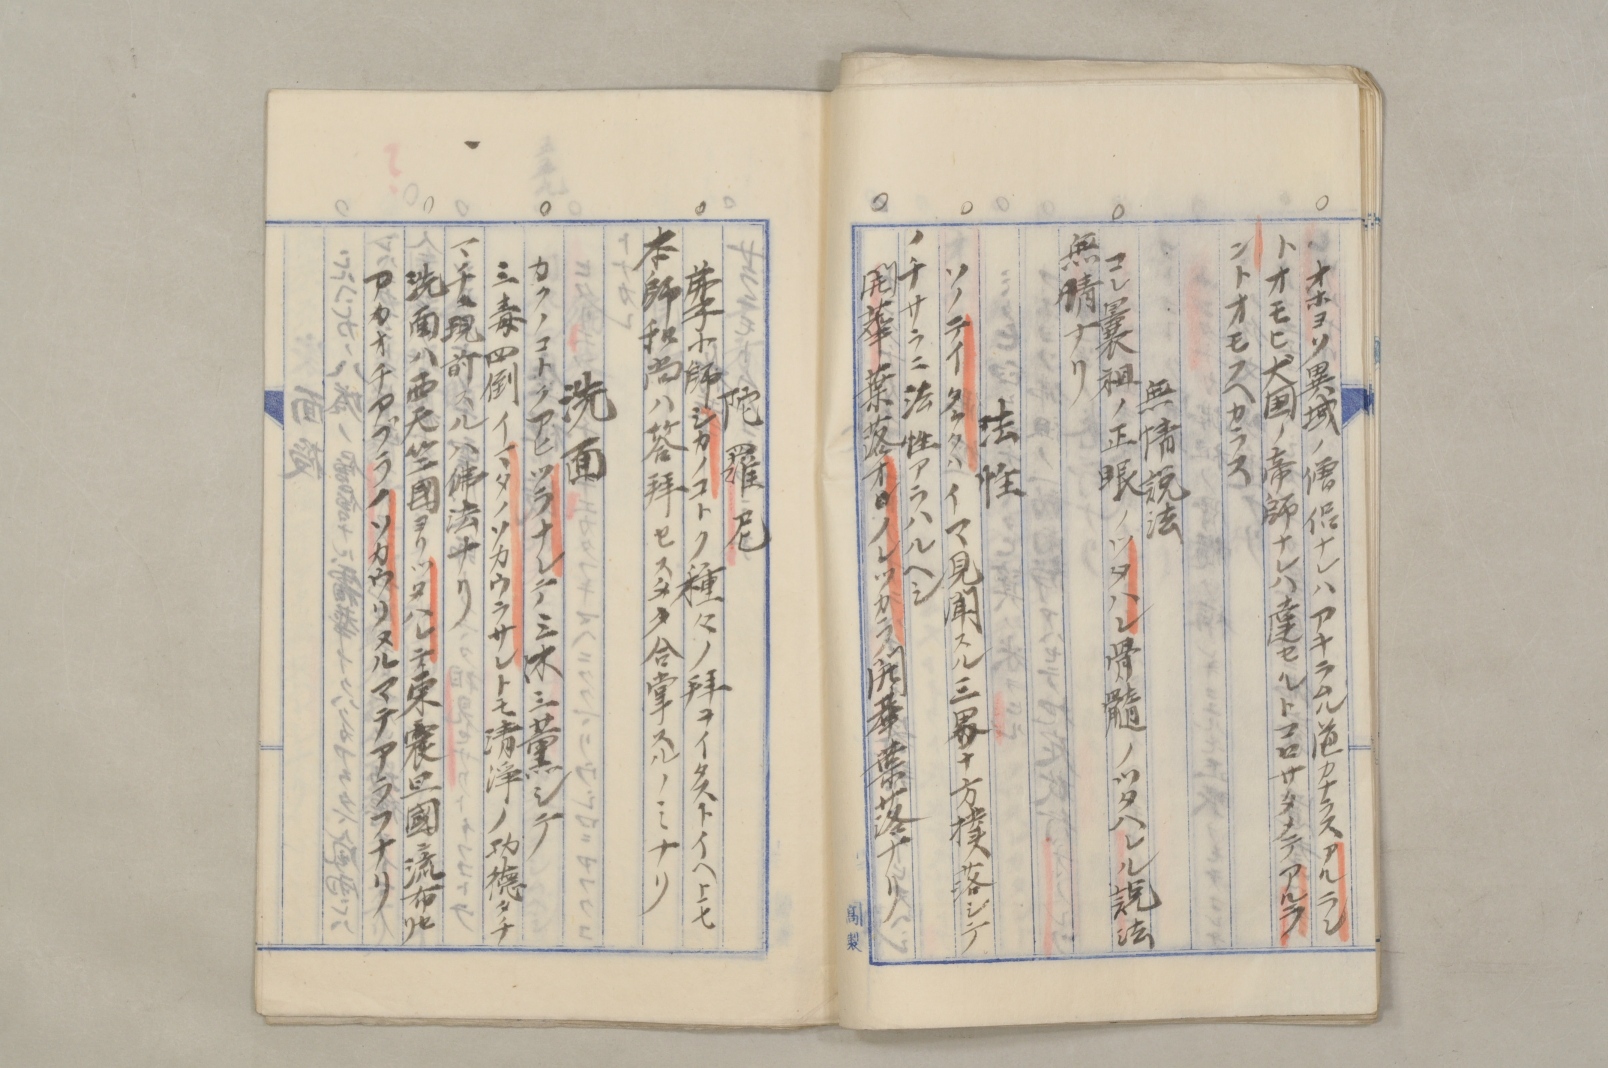 オホヨソ異域ノ僧侶ナレハアキラムル道カナラスアルラン
トオモヒ大国ノ帝師ナレハ達セルトコロサタメテアルラ
ントオモフヘカラス
無情説法
コレ曩祖ノ正眼ノツタハレ骨髓ノツタハレル説法
無情ナリ
法性
ソノテイタラクハイマ見聞スル三界十方撲落シテ
ノチサラニ法性アラハルヘシ
開華葉落オロノレツカラノ開華葉落ナリ
陀羅尼
弟子ホ師シカノコトク種々ノ拜ヲイタストイヘトモ
本師和尚ハ答拜セスタヽ合掌スルノミナリ
洗面
カクノコトクアヒツラナレテ三沐三薰シテ
三毒四倒イマタノソカウラサレトモ清淨ノ功德タチ
マチ現前スルハ佛法ナリ
洗面ハ西天竺國ヨリツタハレテ東震旦國ニ流布セリ
アカオチアブラノソカウリヌルマテアラフナリ
萬製